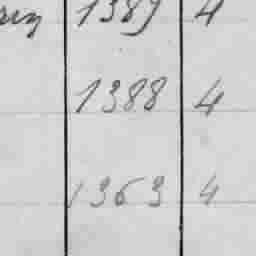 1389 4
1388 4
1363 4